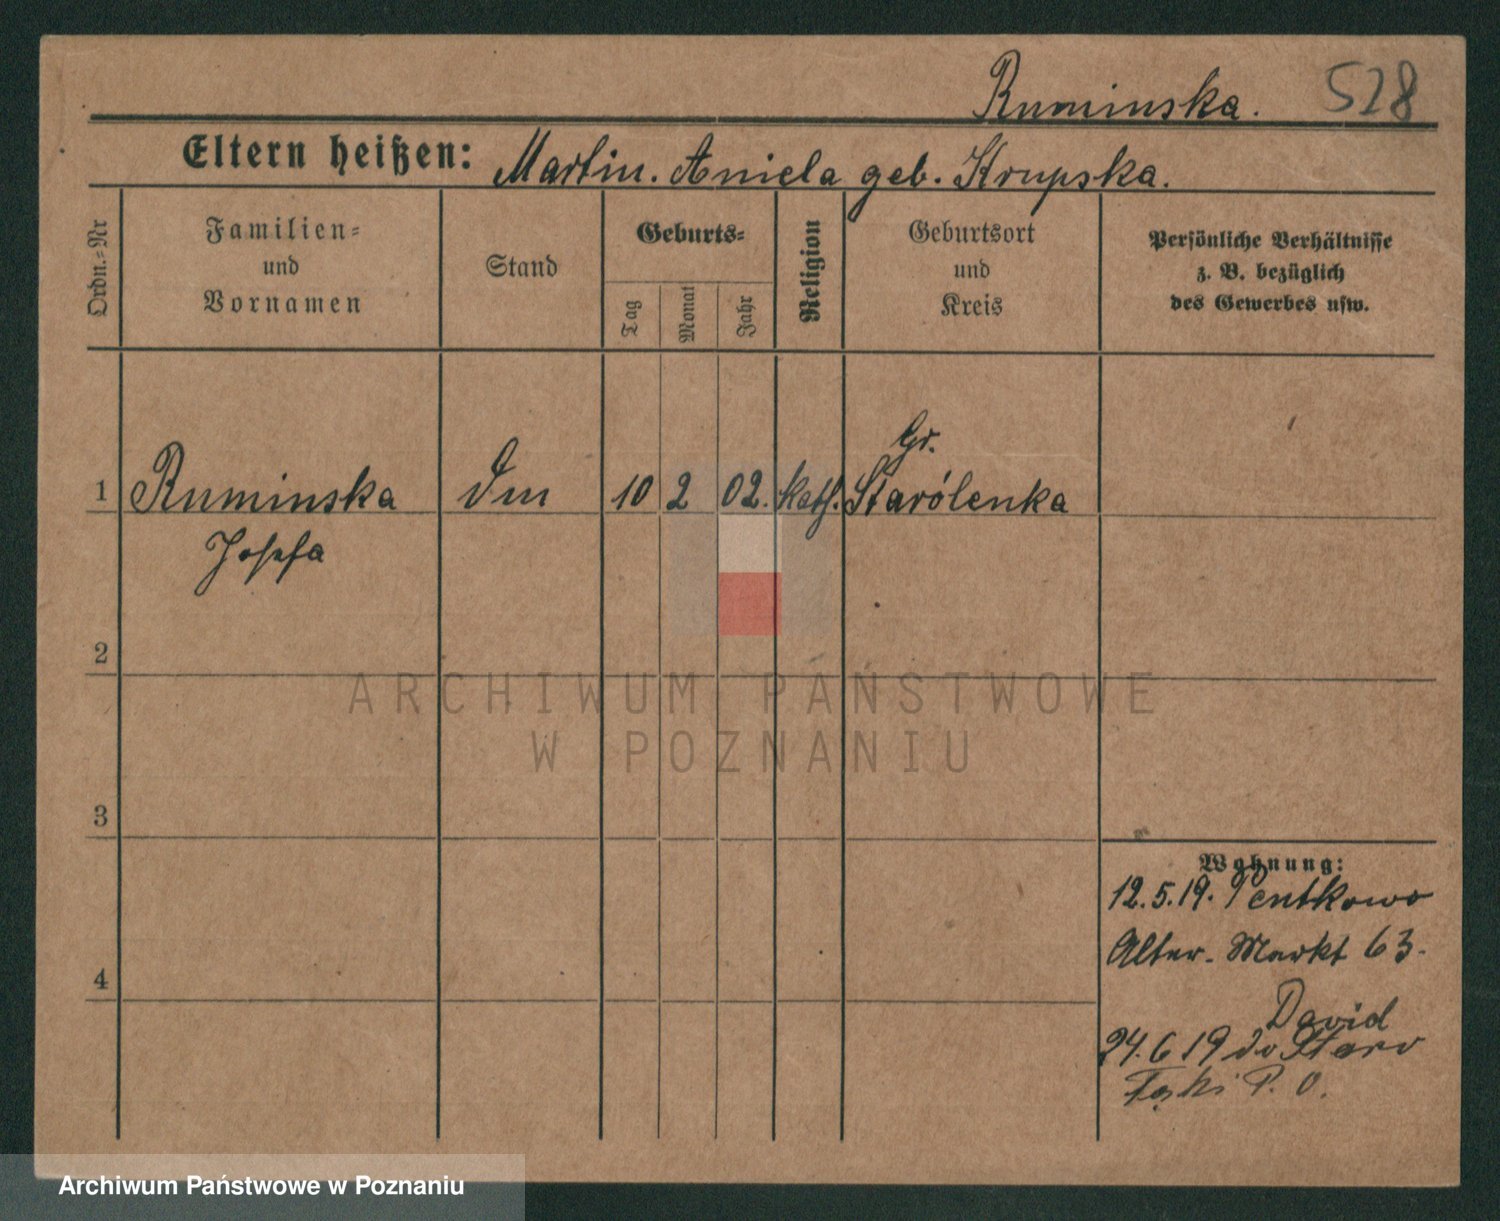 Ruminska. 528
Eltern heißen: Martin. Aniela geb. Krupska.
Ordn.-Nr
Familien-
und
Vornamen
Stand
Geburts-
Tag
Monat
Jahr
Religion
Geburtsort
und
Kreis
Persönliche Verhältnisse
z. B. bezüglich
des Gewerbes usw.
Gr.
1 Ruminska 10 2 02. kath. Starólenka
Josefa
2
3
4
Wohnung:
12.5.19. Pentkowo
Alter. Markt 63.
David
24.6 19 do Staro
P. O.
ARCHIWUM PAŃSTWOWE
W POZNANIU
Archiwum Państwowe w Poznaniu